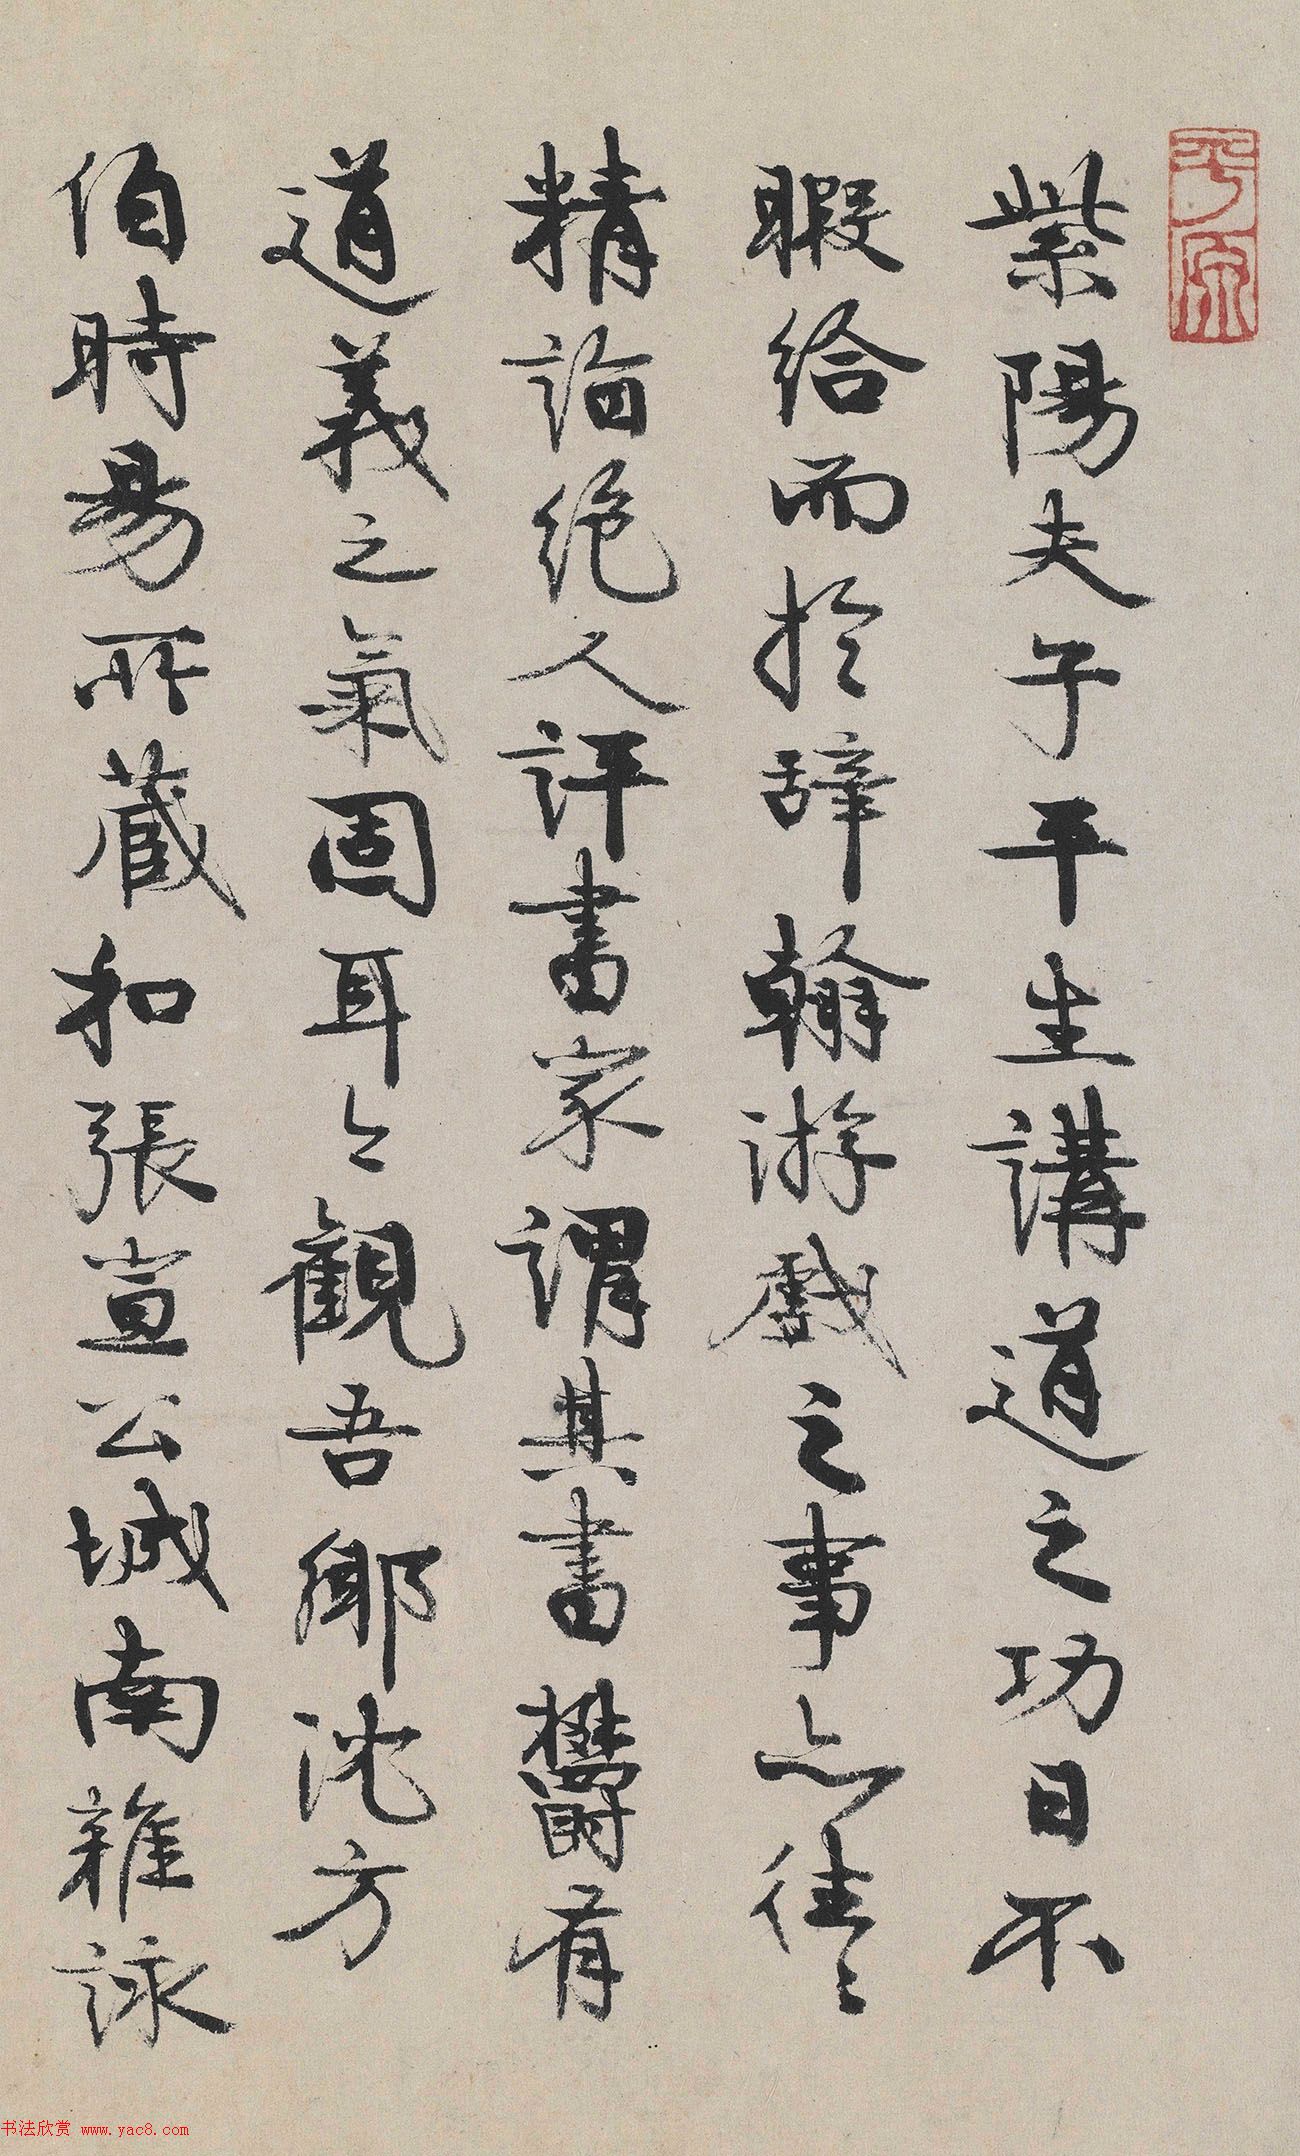 平原
紫陽夫子平生講道之功日不
暇給而於辭翰游戲之事亦往〻
精詣絶人評書家謂其書鬱有
道義之氣固耳〻觀吾鄉沈方
伯時昜所藏和張宣公城南雜詠
书法欣赏 www.yac8.com